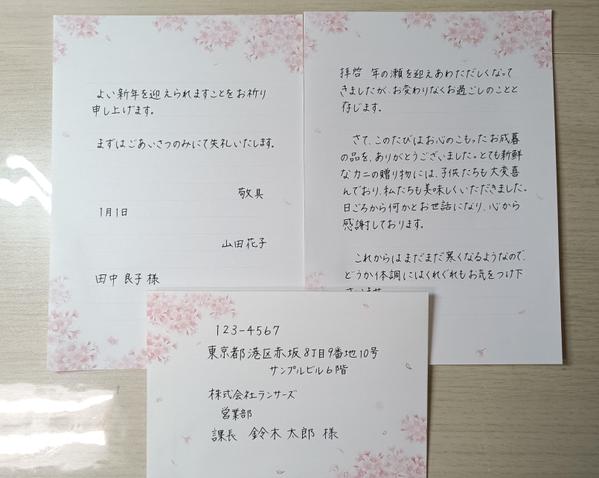 拝啓 年の瀬を迎えあわただしくなって
きましたが、お変わりなくお過ごしのことと
存じます。
さて、このたびはお心のこもったお成暮
の品を、ありがとうございました。とても新鮮
なカニの贈り物には、子供たちも大変喜
んでおり、私たちも美味しくいただきました。
日ごろから何かとお世話になり、心から
感謝しております。
これからはまだまだ寒くなるようなので、
どうか体調にはくれぐれもお気をつけ下
よい新年を迎えられますことをお祈り
申し上げます。
まずはごあいさつのみにて失礼いたします。
敬具
1月1日
山田花子
田中 良子 様
123-4567
東京都港区赤坂8丁目9番地10号
サンプルビル6階
株式会社ランサーズ
営業部
課長 鈴木 太郎 様